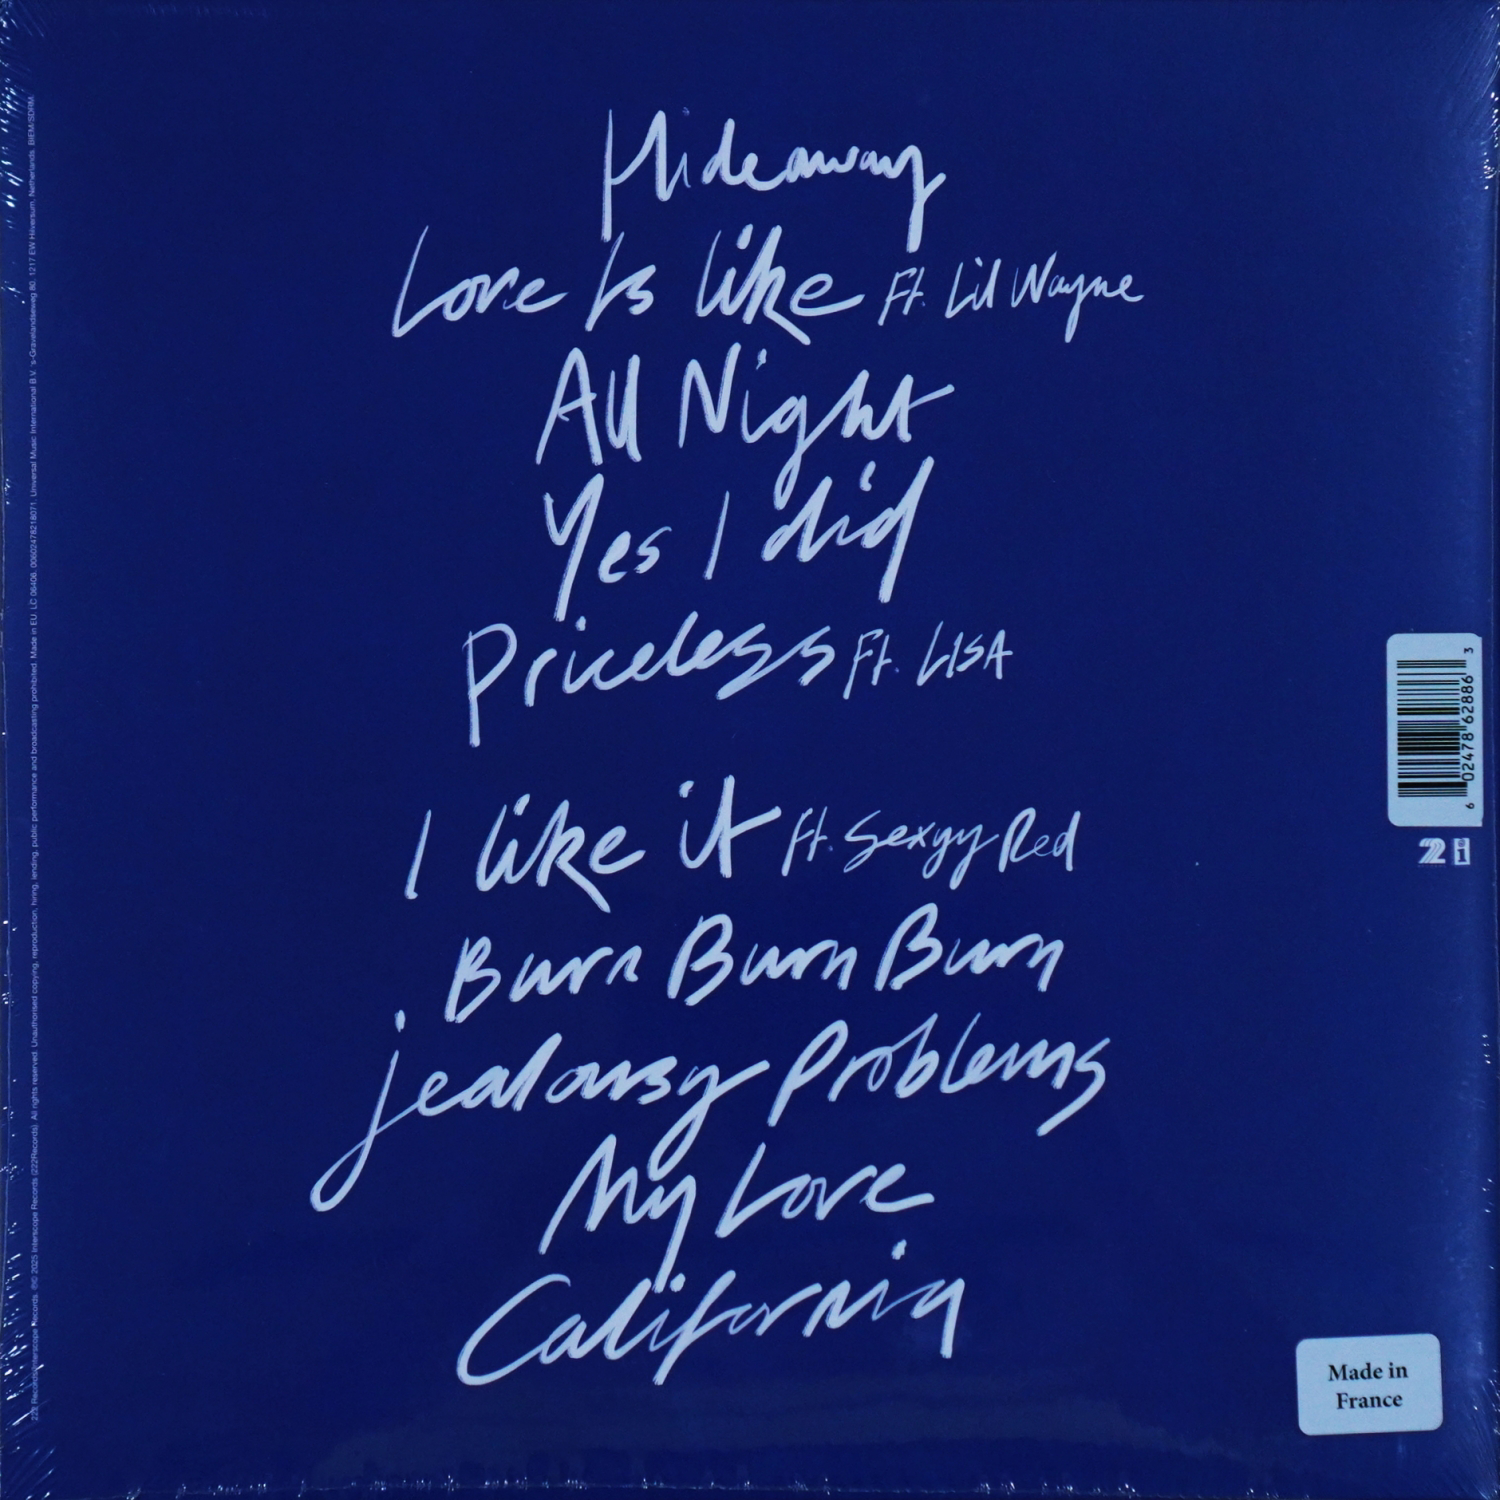 Hideaway
Love Is like Ft. Lil Wayne
All Night
Yes I did
Priceless Ft. LISA
I like it ft. Sexyy Red
Burn Burn Burn
jealousy Problems
My Love
California
222 Records/Interscope Records. ℗© 2025 Interscope Records (222Records). All rights reserved. Unauthorised copying, reproduction, hiring, lending, public performance and broadcasting prohibited. Made in EU. LC 06406. 00602478218071. Universal Music International B.V. 's-Gravelandseweg 80, 1217 EW Hilversum, Netherlands. BIEM/SDRM.
6 02478 62886 3
222 i
Made in
France